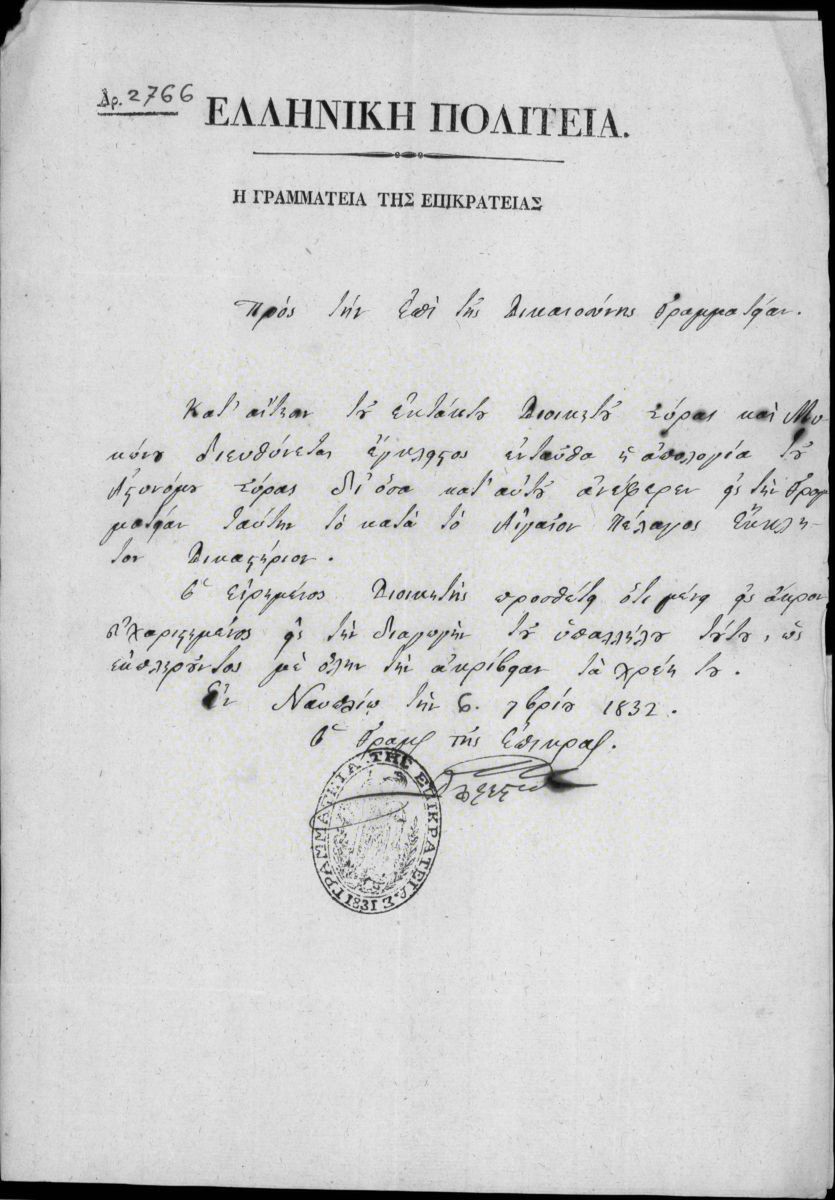 Ἀρ. 2766
ΕΛΛΗΝΙΚΗ ΠΟΛΙΤΕΙΑ.
Η ΓΡΑΜΜΑΤΕΙΑ ΤΗΣ ΕΠΙΚΡΑΤΕΙΑΣ
Πρὸς τὴν Ἐπὶ τῆς Δικαιοσύνης Γραμματείαν.
Κατ' αἴτησιν τοῦ ἐκτάκτου Διοικητοῦ Σύρας καὶ Μυ
κόνου διευθύνεται ἔγκλειστος ἐνταῦθα ἡ ἀπολογία τοῦ
Ἀστυνόμου Σύρας δι' ὅσα κατ' αὐτοῦ ἀνέφερεν εἰς τὴν Γραμ
ματείαν ταύτην τὸ κατὰ τὸ Αἰγαῖον Πέλαγος Ἔκκλη-
τον Δικαστήριον.
Ὁ εἰρημένος Διοικητὴς προσθέτει ὅτι μένει εἰς ἄκρον
εὐχαριστημένος εἰς τὴν διαγωγὴν τοῦ ὑπαλλήλου τούτου, ὡς
ἐκπληροῦντος μὲ ὅλην τὴν ἀκρίβειαν τὰ χρέη του.
Ἐν Ναυπλίῳ τὴν 6. 7βρίου 1832.
Ὁ Γραμς τῆς Ἐπικρας.
ΓΡΑΜΜΑΤΕΙΑ ΤΗΣ ΕΠΙΚΡΑΤΕΙΑΣ 1831